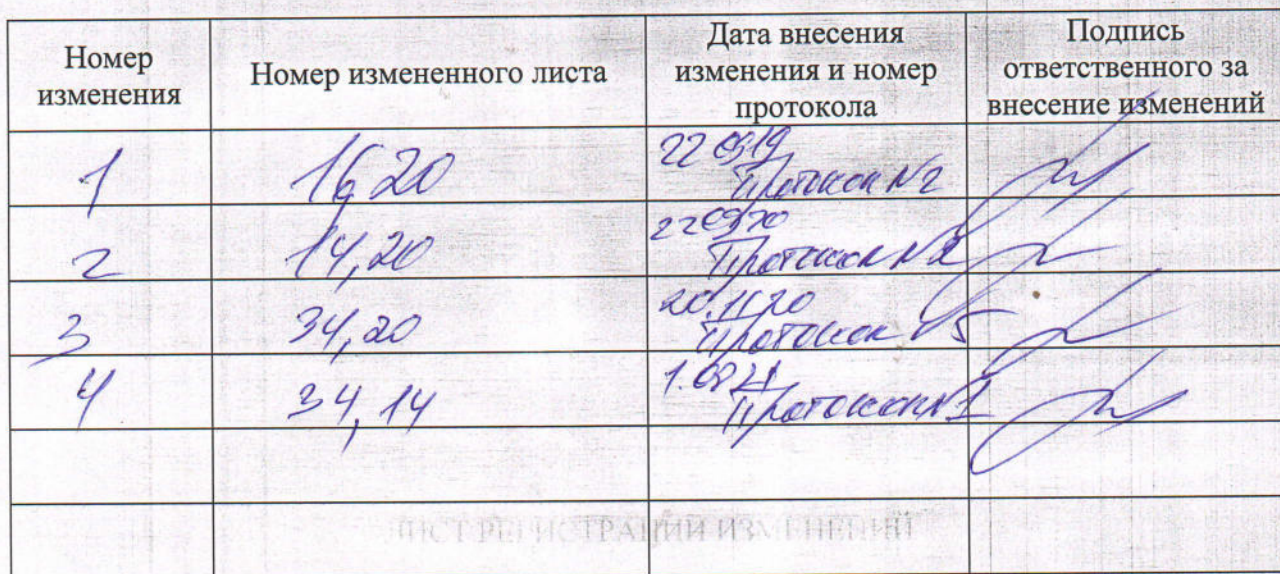 Номер изменения
Номер измененного листа
Дата внесения изменения и номер протокола
Подпись ответственного за внесение изменений
1
16,20
22 0919
Протокол №2
2
14,20
220920
Протокол №2
3
34,20
20.11.20
Протокол 5
4
34,14
1.0921
Протокол №1
ЛИСТ РЕГИСТРАЦИИ ИЗМЕНЕНИЙ